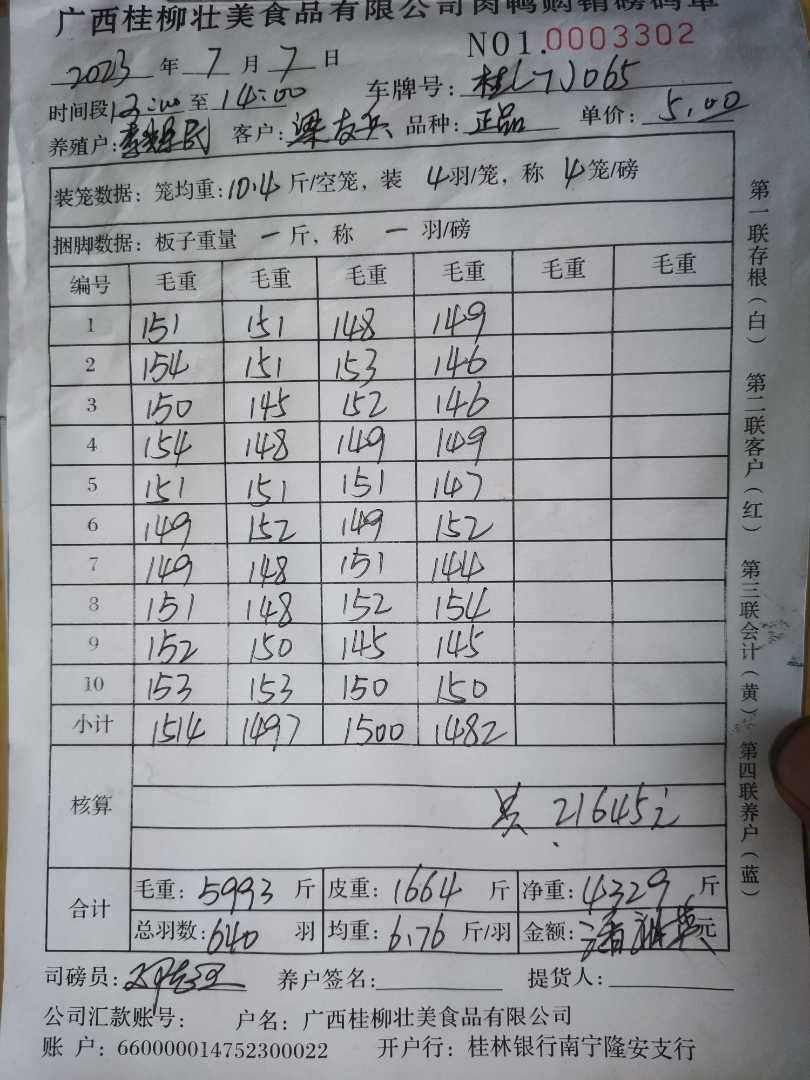 广西桂柳壮美食品有限公司肉鸭购销磅码单
NO1.0003302
2023 年 7 月 7 日
时间段 13:00 至 14:00 车牌号: 065
养殖户: 客户: 梁友兵 品种: 正品 单价: 5.00
装笼数据: 笼均重: 10.4 斤/空笼, 装 4 羽/笼, 称 4 笼/磅
捆脚数据: 板子重量 一 斤, 称 一 羽/磅
编号 毛重 毛重 毛重 毛重 毛重 毛重
1 151 151 148 149
2 154 151 153 146
3 150 145 152 146
4 154 148 149 149
5 151 151 151 147
6 149 152 149 152
7 149 148 151 144
8 151 148 152 154
9 152 150 145 145
10 153 153 150 150
小计 1514 1497 1500 1482
核算 共. 21645元
合计 毛重: 5993 斤 皮重: 1664 斤 净重: 4329 斤
总羽数: 640 羽 均重: 6.76 斤/羽 金额: 元
司磅员: 养户签名: 提货人:
公司汇款账号: 户名: 广西桂柳壮美食品有限公司
账 户: 660000014752300022 开户行: 桂林银行南宁隆安支行
第一联存根(白) 第二联客户(红) 第三联会计(黄) 第四联养户(蓝)